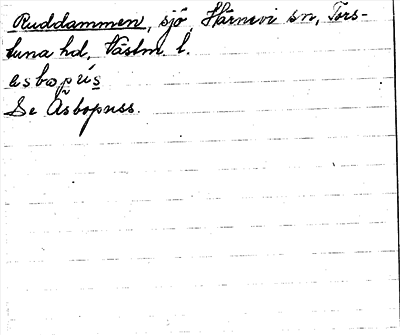 Ruddammen, sjö Härnevi sn, Tors-
tuna hd, Västm. l.
asbopùs
Se Åsbopuss.